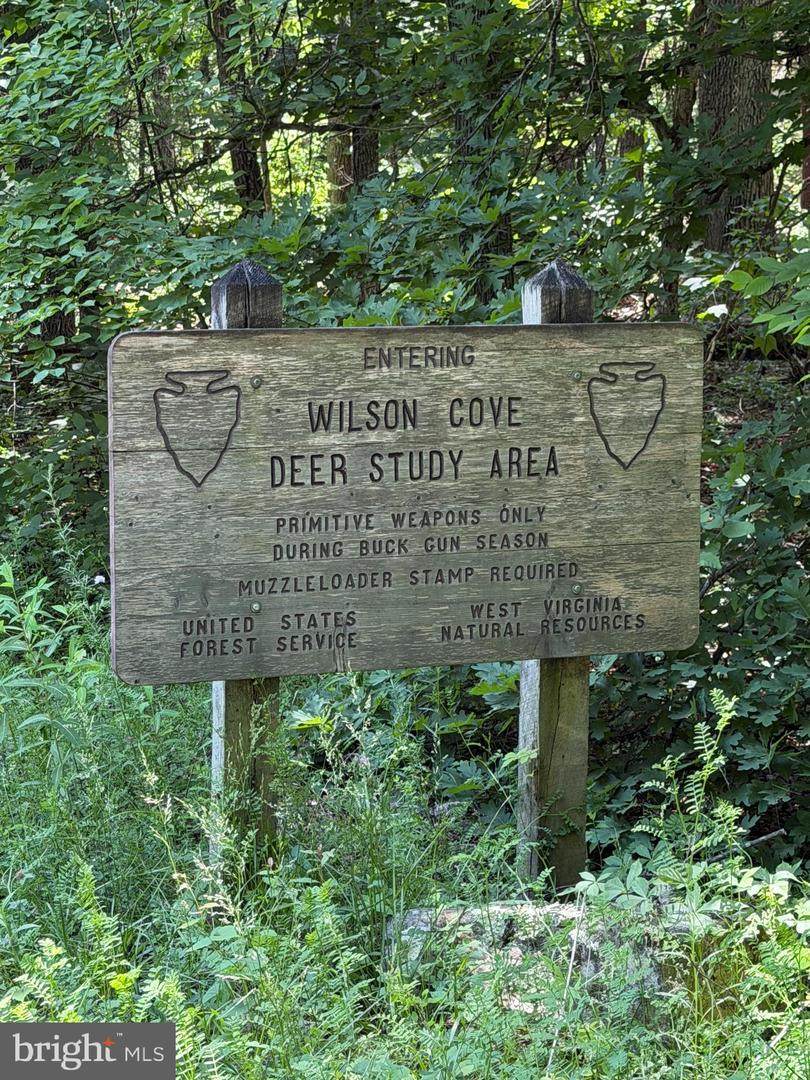 ENTERING
WILSON COVE
DEER STUDY AREA
PRIMITIVE WEAPONS ONLY
DURING BUCK GUN SEASON
MUZZLELOADER STAMP REQUIRED
UNITED STATES
FOREST SERVICE
WEST VIRGINIA
NATURAL RESOURCES
bright MLS